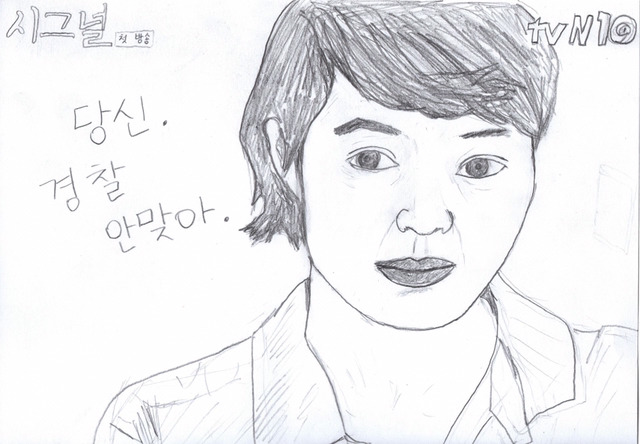 시그널 첫 방송
tvN10
당신.
경찰
안맞아.